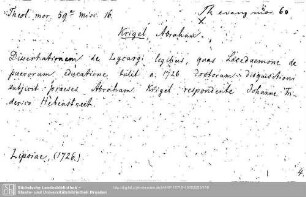 Theol. mor. 59 misc. 16.
Th. evang. misc. 60
Krigel Abraham.
Dissertationem de Lycurgi legibus, quas Lacedaemone de
puerorum educatione tulit a. 1726. doctorum disquisitioni
subjicit praeses Abraham Krigel respondente Johanne
derico Hebenstreit
Lipsiae, (1726.)
4.
Sächsische Landesbibliothek -
Staats- und Universitätsbibliothek Dresden